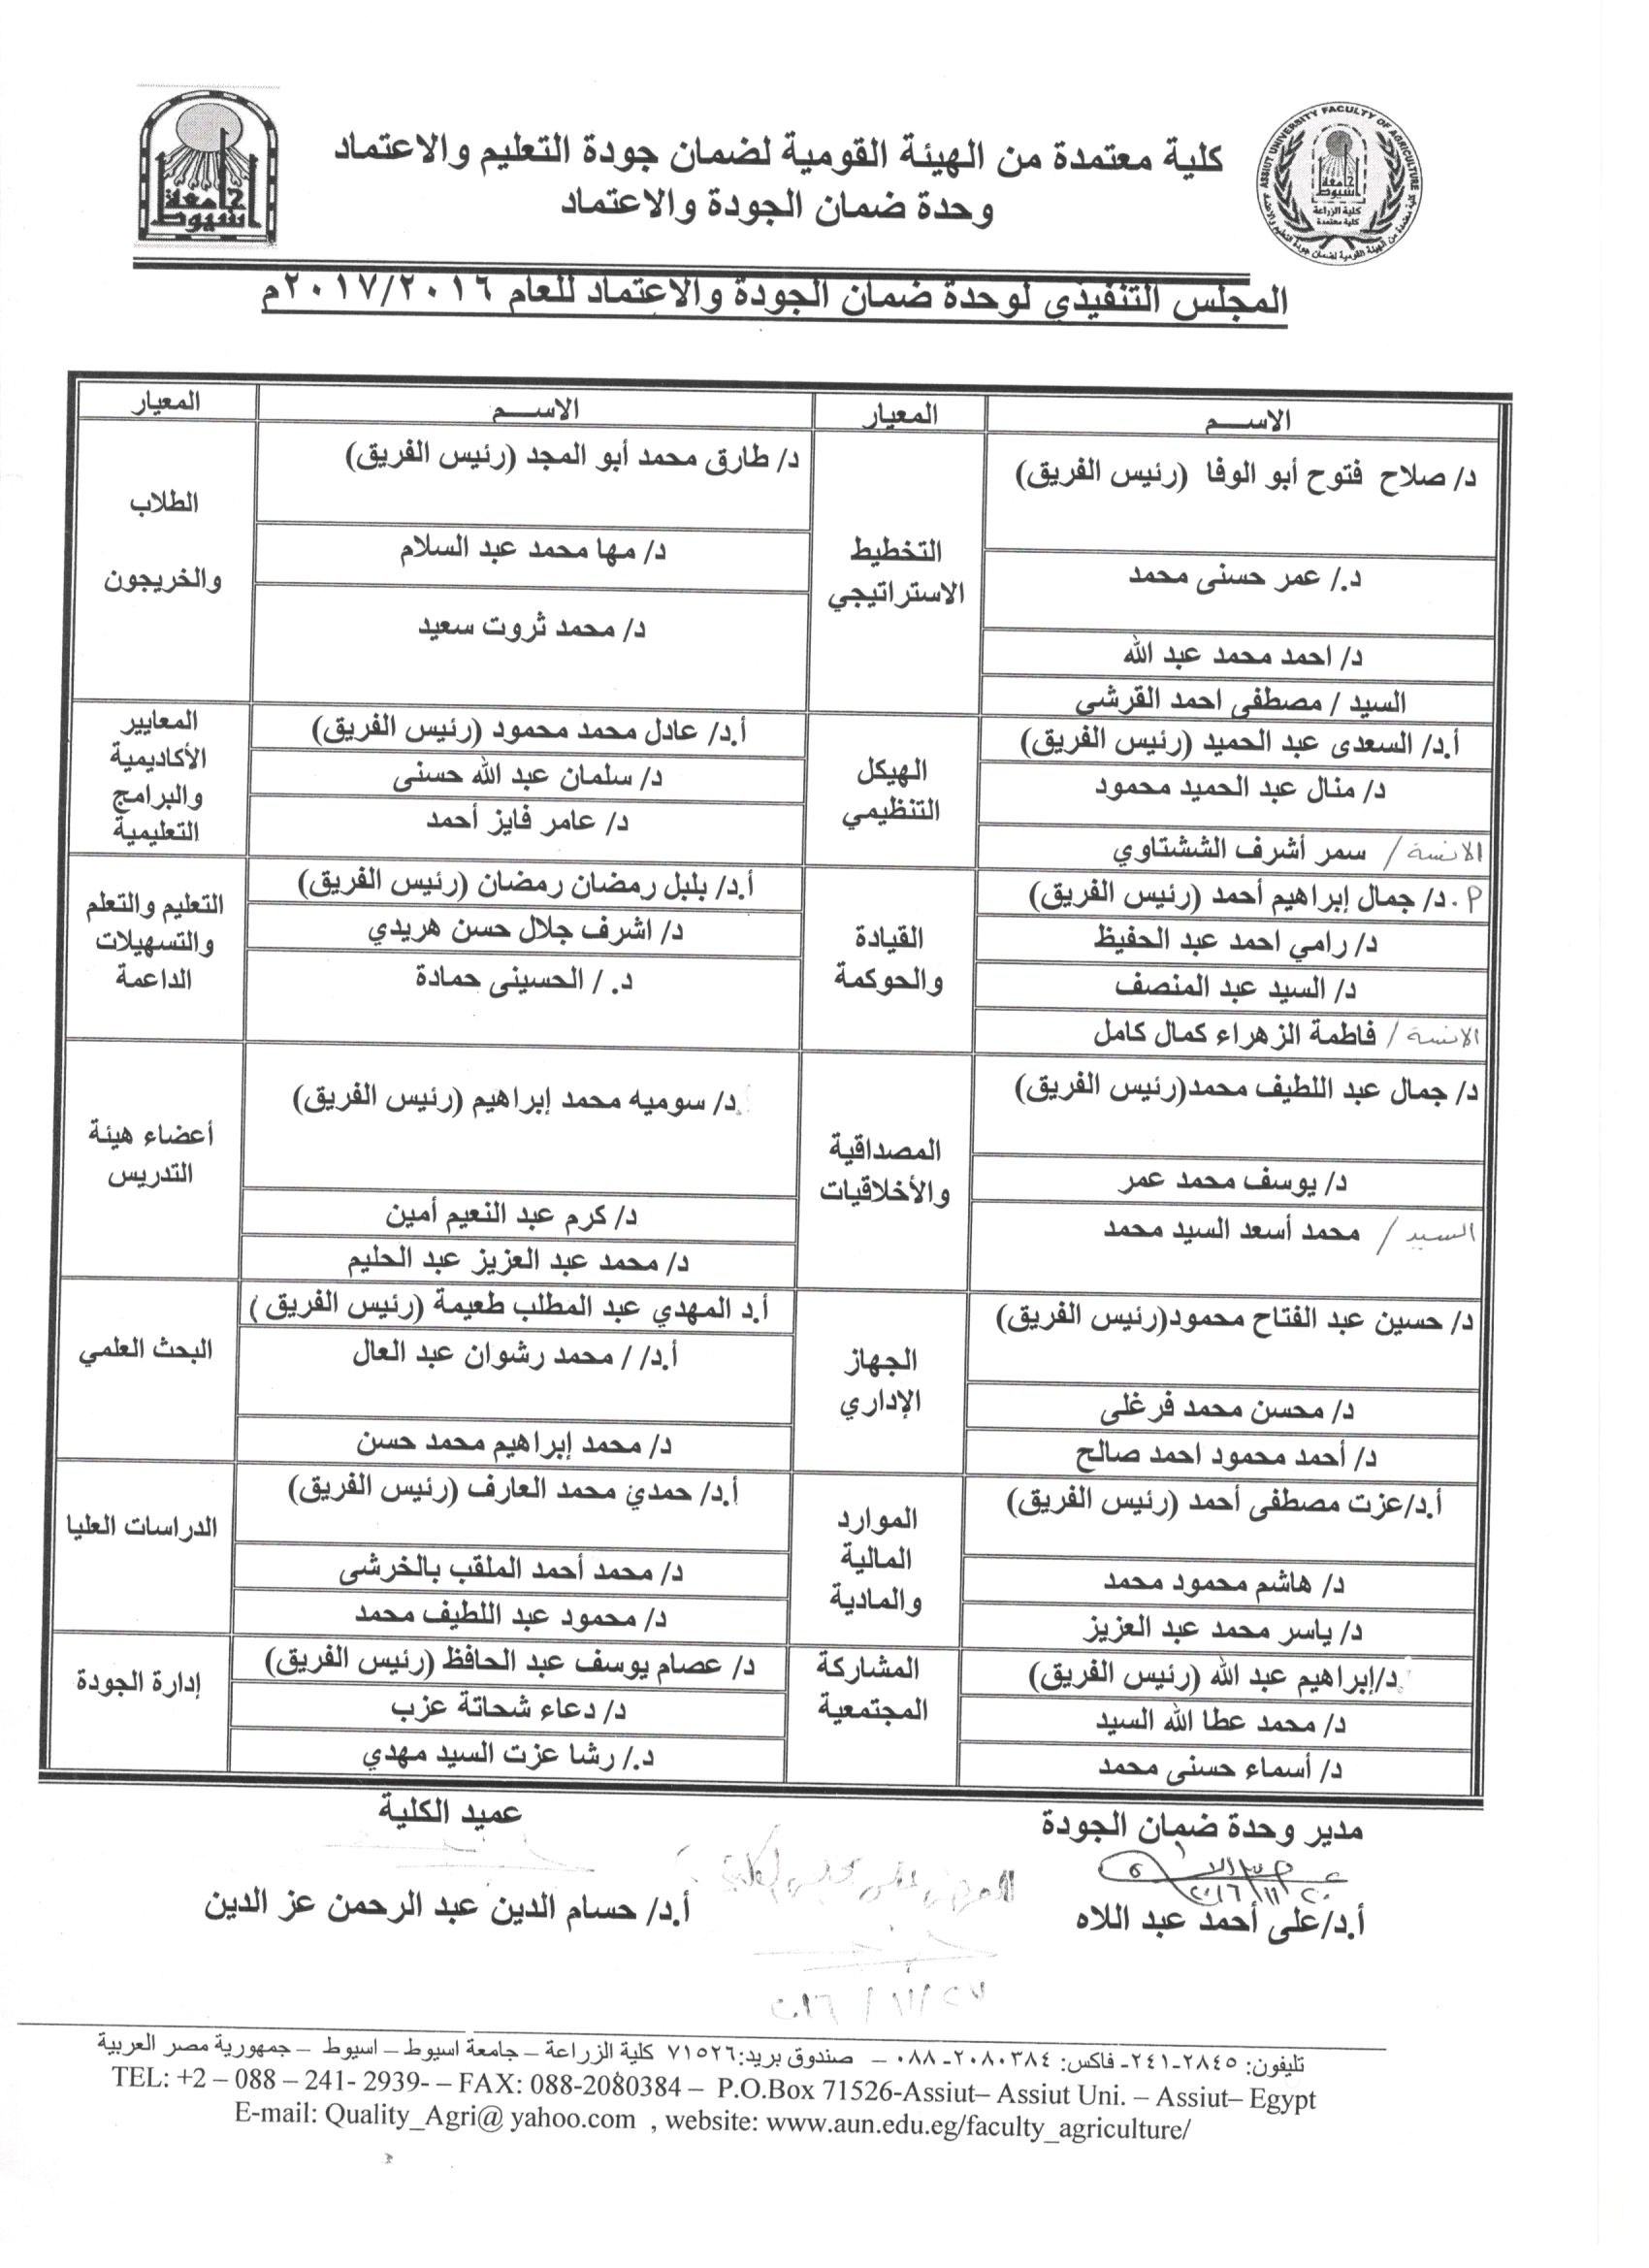 كلية معتمدة من الهيئة القومية لضمان جودة التعليم والاعتماد
وحدة ضمان الجودة والاعتماد
جامعة أسيوط
ASSIUT UNIVERSITY FACULTY OF AGRICULTURE
جامعة أسيوط
كلية الزراعة
كلية معتمدة
المجلس التنفيذي لوحدة ضمان الجودة والاعتماد للعام ٢٠١٧/٢٠١٦م
الاســـم المعيار الاســـم المعيار
د/ صلاح فتوح أبو الوفا (رئيس الفريق)
د./ عمر حسنى محمد
د/ احمد محمد عبد الله
السيد / مصطفى احمد القرشي
التخطيط
الاستراتيجي
د/ طارق محمد أبو المجد (رئيس الفريق)
د/ مها محمد عبد السلام
د/ محمد ثروت سعيد
الطلاب
والخريجون
أ.د/ السعدى عبد الحميد (رئيس الفريق)
د/ منال عبد الحميد محمود
الانسة / سمر أشرف الششتاوي
الهيكل
التنظيمي
أ.د/ عادل محمد محمود (رئيس الفريق)
د/ سلمان عبد الله حسنى
د/ عامر فايز أحمد
المعايير
الأكاديمية
والبرامج
التعليمية
م.د/ جمال إبراهيم أحمد (رئيس الفريق)
د/ رامي احمد عبد الحفيظ
د/ السيد عبد المنصف
الانسة / فاطمة الزهراء كمال كامل
القيادة
والحوكمة
أ.د/ بلبل رمضان رمضان (رئيس الفريق)
د/ اشرف جلال حسن هريدي
د. / الحسينى حمادة
التعليم والتعلم
والتسهيلات
الداعمة
د/ جمال عبد اللطيف محمد(رئيس الفريق)
د/ يوسف محمد عمر
السيد / محمد أسعد السيد محمد
المصداقية
والأخلاقيات
د/ سوميه محمد إبراهيم (رئيس الفريق)
د/ كرم عبد النعيم أمين
د/ محمد عبد العزيز عبد الحليم
أعضاء هيئة
التدريس
د/ حسين عبد الفتاح محمود(رئيس الفريق)
د/ محسن محمد فرغلى
د/ أحمد محمود احمد صالح
الجهاز
الإداري
أ.د المهدي عبد المطلب طعيمة (رئيس الفريق )
أ.د/ / محمد رشوان عبد العال
د/ محمد إبراهيم محمد حسن
البحث العلمي
أ.د/عزت مصطفى أحمد (رئيس الفريق)
د/ هاشم محمود محمد
د/ ياسر محمد عبد العزيز
الموارد
المالية
والمادية
أ.د/ حمدي محمد العارف (رئيس الفريق)
د/ محمد أحمد الملقب بالخرشى
د/ محمود عبد اللطيف محمد
الدراسات العليا
د/إبراهيم عبد الله (رئيس الفريق)
د/ محمد عطا الله السيد
د/ أسماء حسنى محمد
المشاركة
المجتمعية
د/ عصام يوسف عبد الحافظ (رئيس الفريق)
د/ دعاء شحاتة عزب
د./ رشا عزت السيد مهدي
إدارة الجودة
مدير وحدة ضمان الجودة
٢٠١٦/١١/٢٠
أ.د/على أحمد عبد اللاه
عميد الكلية
أ.د/ حسام الدين عبد الرحمن عز الدين
تليفون: ٢٨٤٥-٢٤١- فاكس: ٢٠٨٠٣٨٤-٠٨٨ – صندوق بريد:٧١٥٢٦ كلية الزراعة – جامعة اسيوط – اسيوط – جمهورية مصر العربية
TEL: +2 – 088 – 241- 2939- – FAX: 088-2080384 – P.O.Box 71526-Assiut– Assiut Uni. – Assiut– Egypt
E-mail: Quality_Agri@ yahoo.com , website: www.aun.edu.eg/faculty_agriculture/